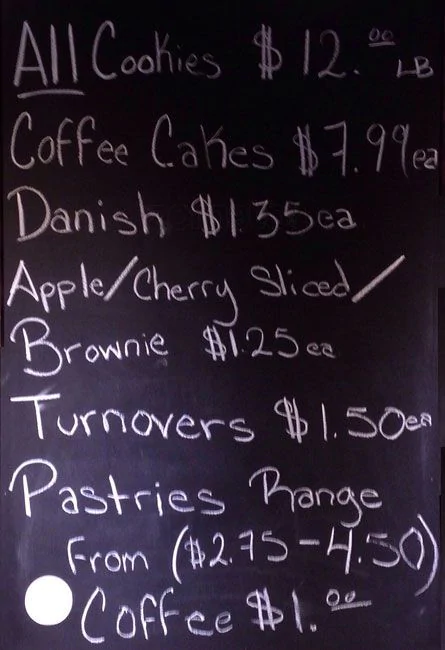 All Cookies $12.00 LB
Coffee Cakes $7.99 ea
Danish $1.35 ea
Apple/Cherry Sliced/
Brownie $1.25 ea
Turnovers $1.50 ea
Pastries Range
From ($2.75 - 4.50)
Coffee $1.00